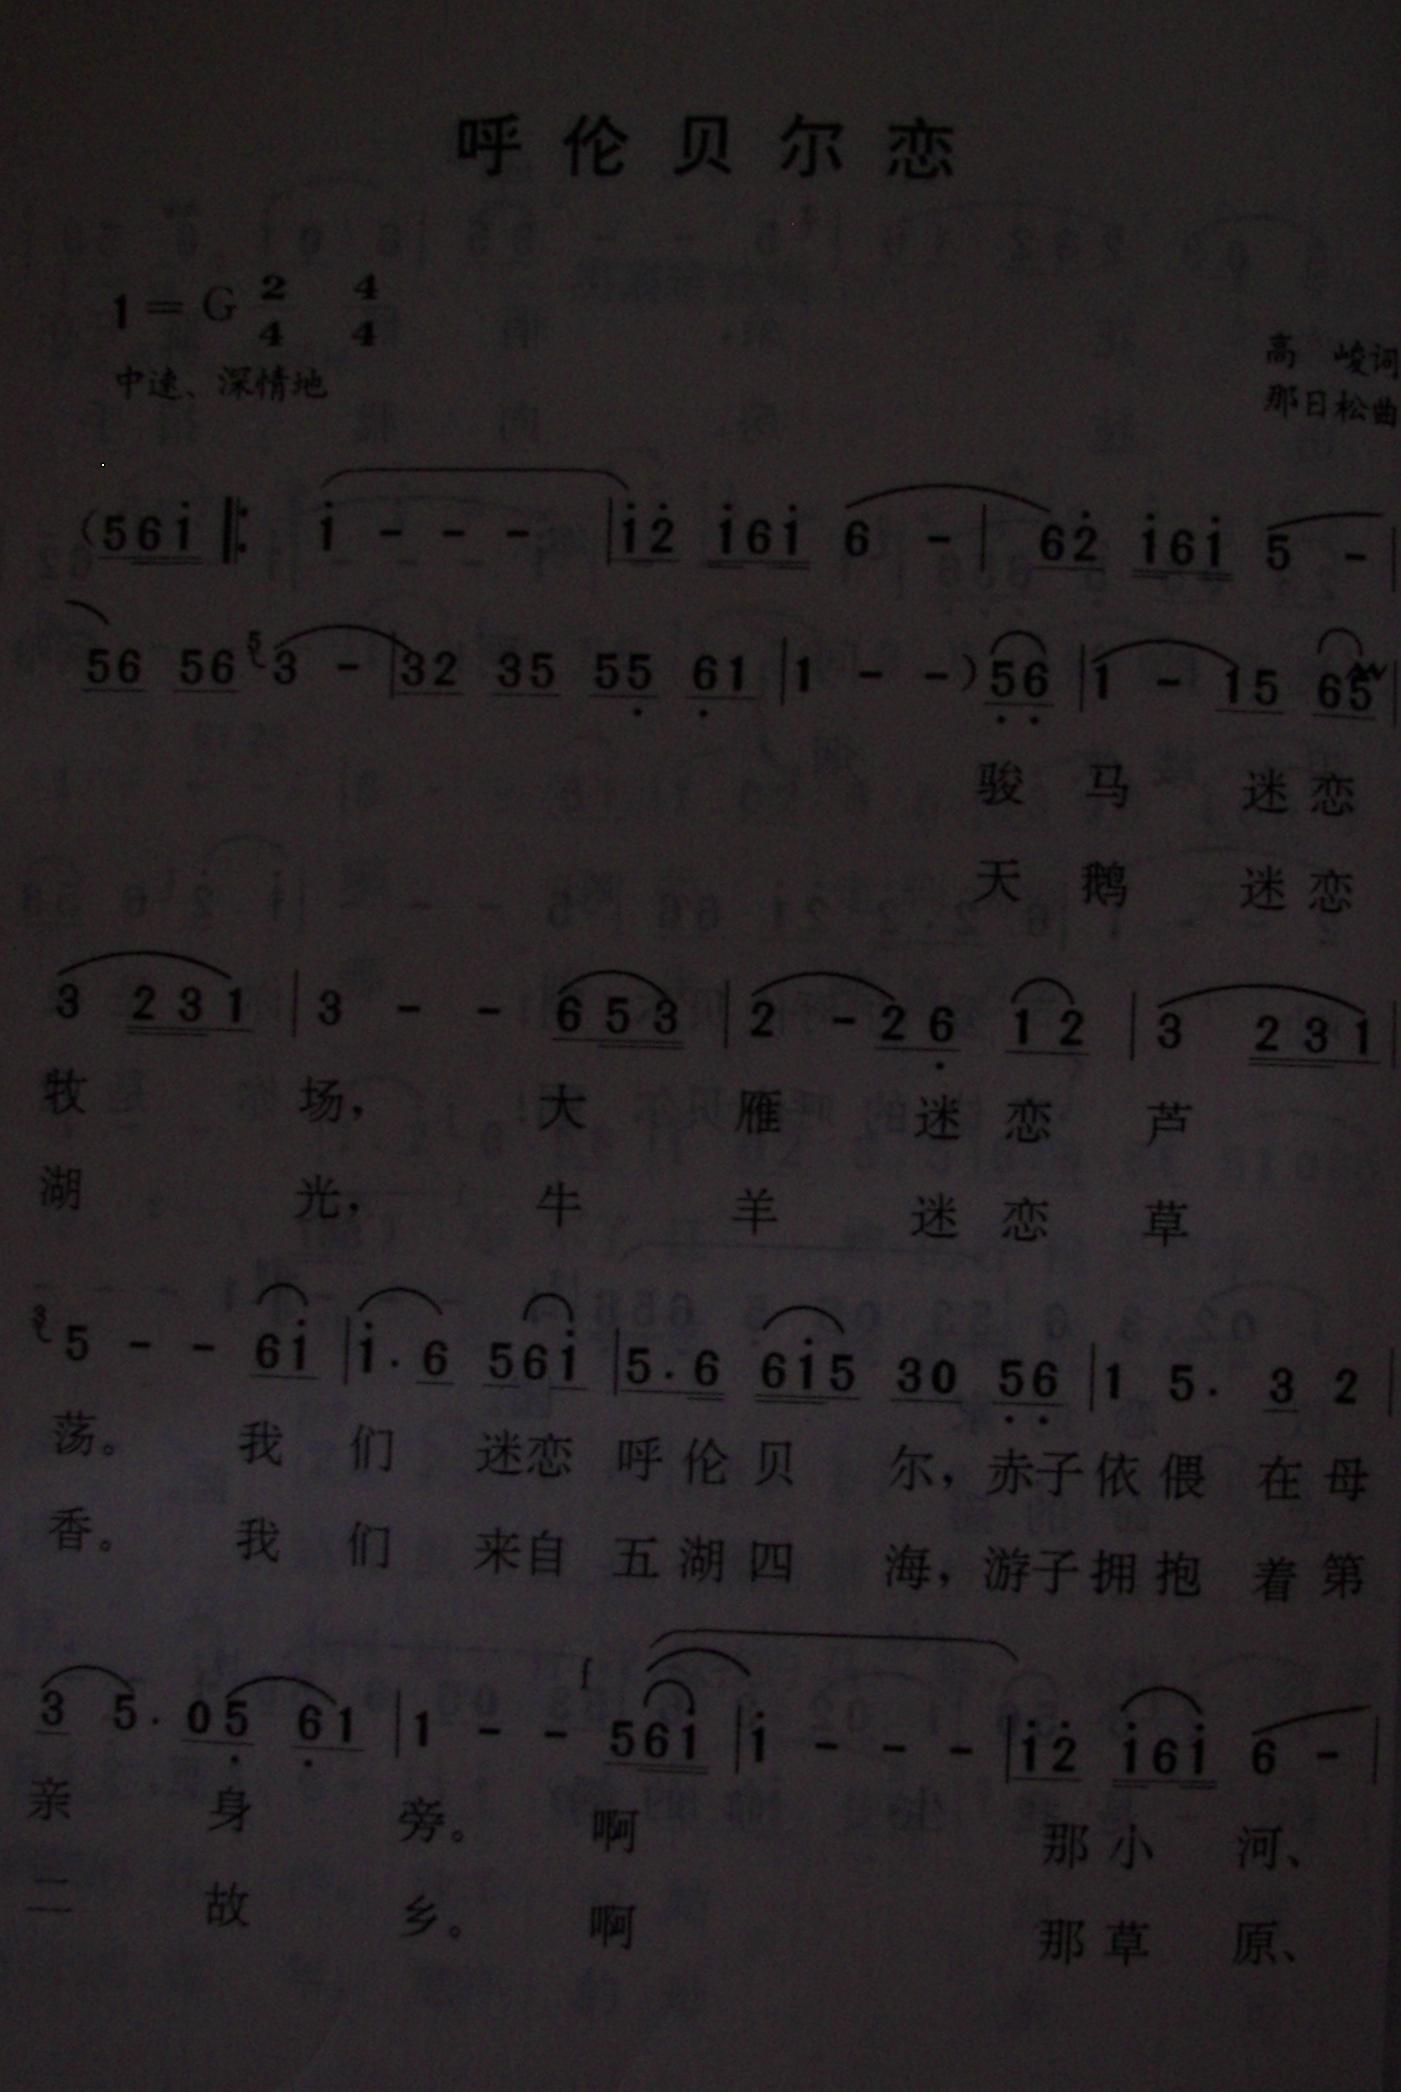 呼伦贝尔恋
1=G 2/4 4/4
中速、深情地
高 峻词
那日松曲
(561̇ ‖: 1̇ - - - | 1̇2̇ 1̇61̇ 6 - | 62̇ 1̇61̇ 5 - |
56 56 5 3 - | 32 35 55̣ 6̣1 | 1 - - ) 5̣6̣ | 1 - 15 65 |
骏 马 迷 恋
天 鹅 迷 恋
3 231 | 3 - - 653 | 2 - 26̣ 12 | 3 231 |
牧 场, 大 雁 迷 恋 芦
湖 光, 牛 羊 迷 恋 草
3 5 - - 61̇ | 1̇. 6 561̇ | 5. 6 61̇5 30 5̣6̣ | 1 5. 3 2 |
荡。 我 们 迷恋 呼 伦 贝 尔, 赤子依 偎 在 母
香。 我 们 来自 五 湖 四 海, 游子拥 抱 着 第
3 5. 05̣ 6̣1 | 1 - - f 561 | 1̇ - - - | 1̇2̇ 1̇61̇ 6 - |
亲 身 旁。 啊 那 小 河、
二 故 乡。 啊 那 草 原、